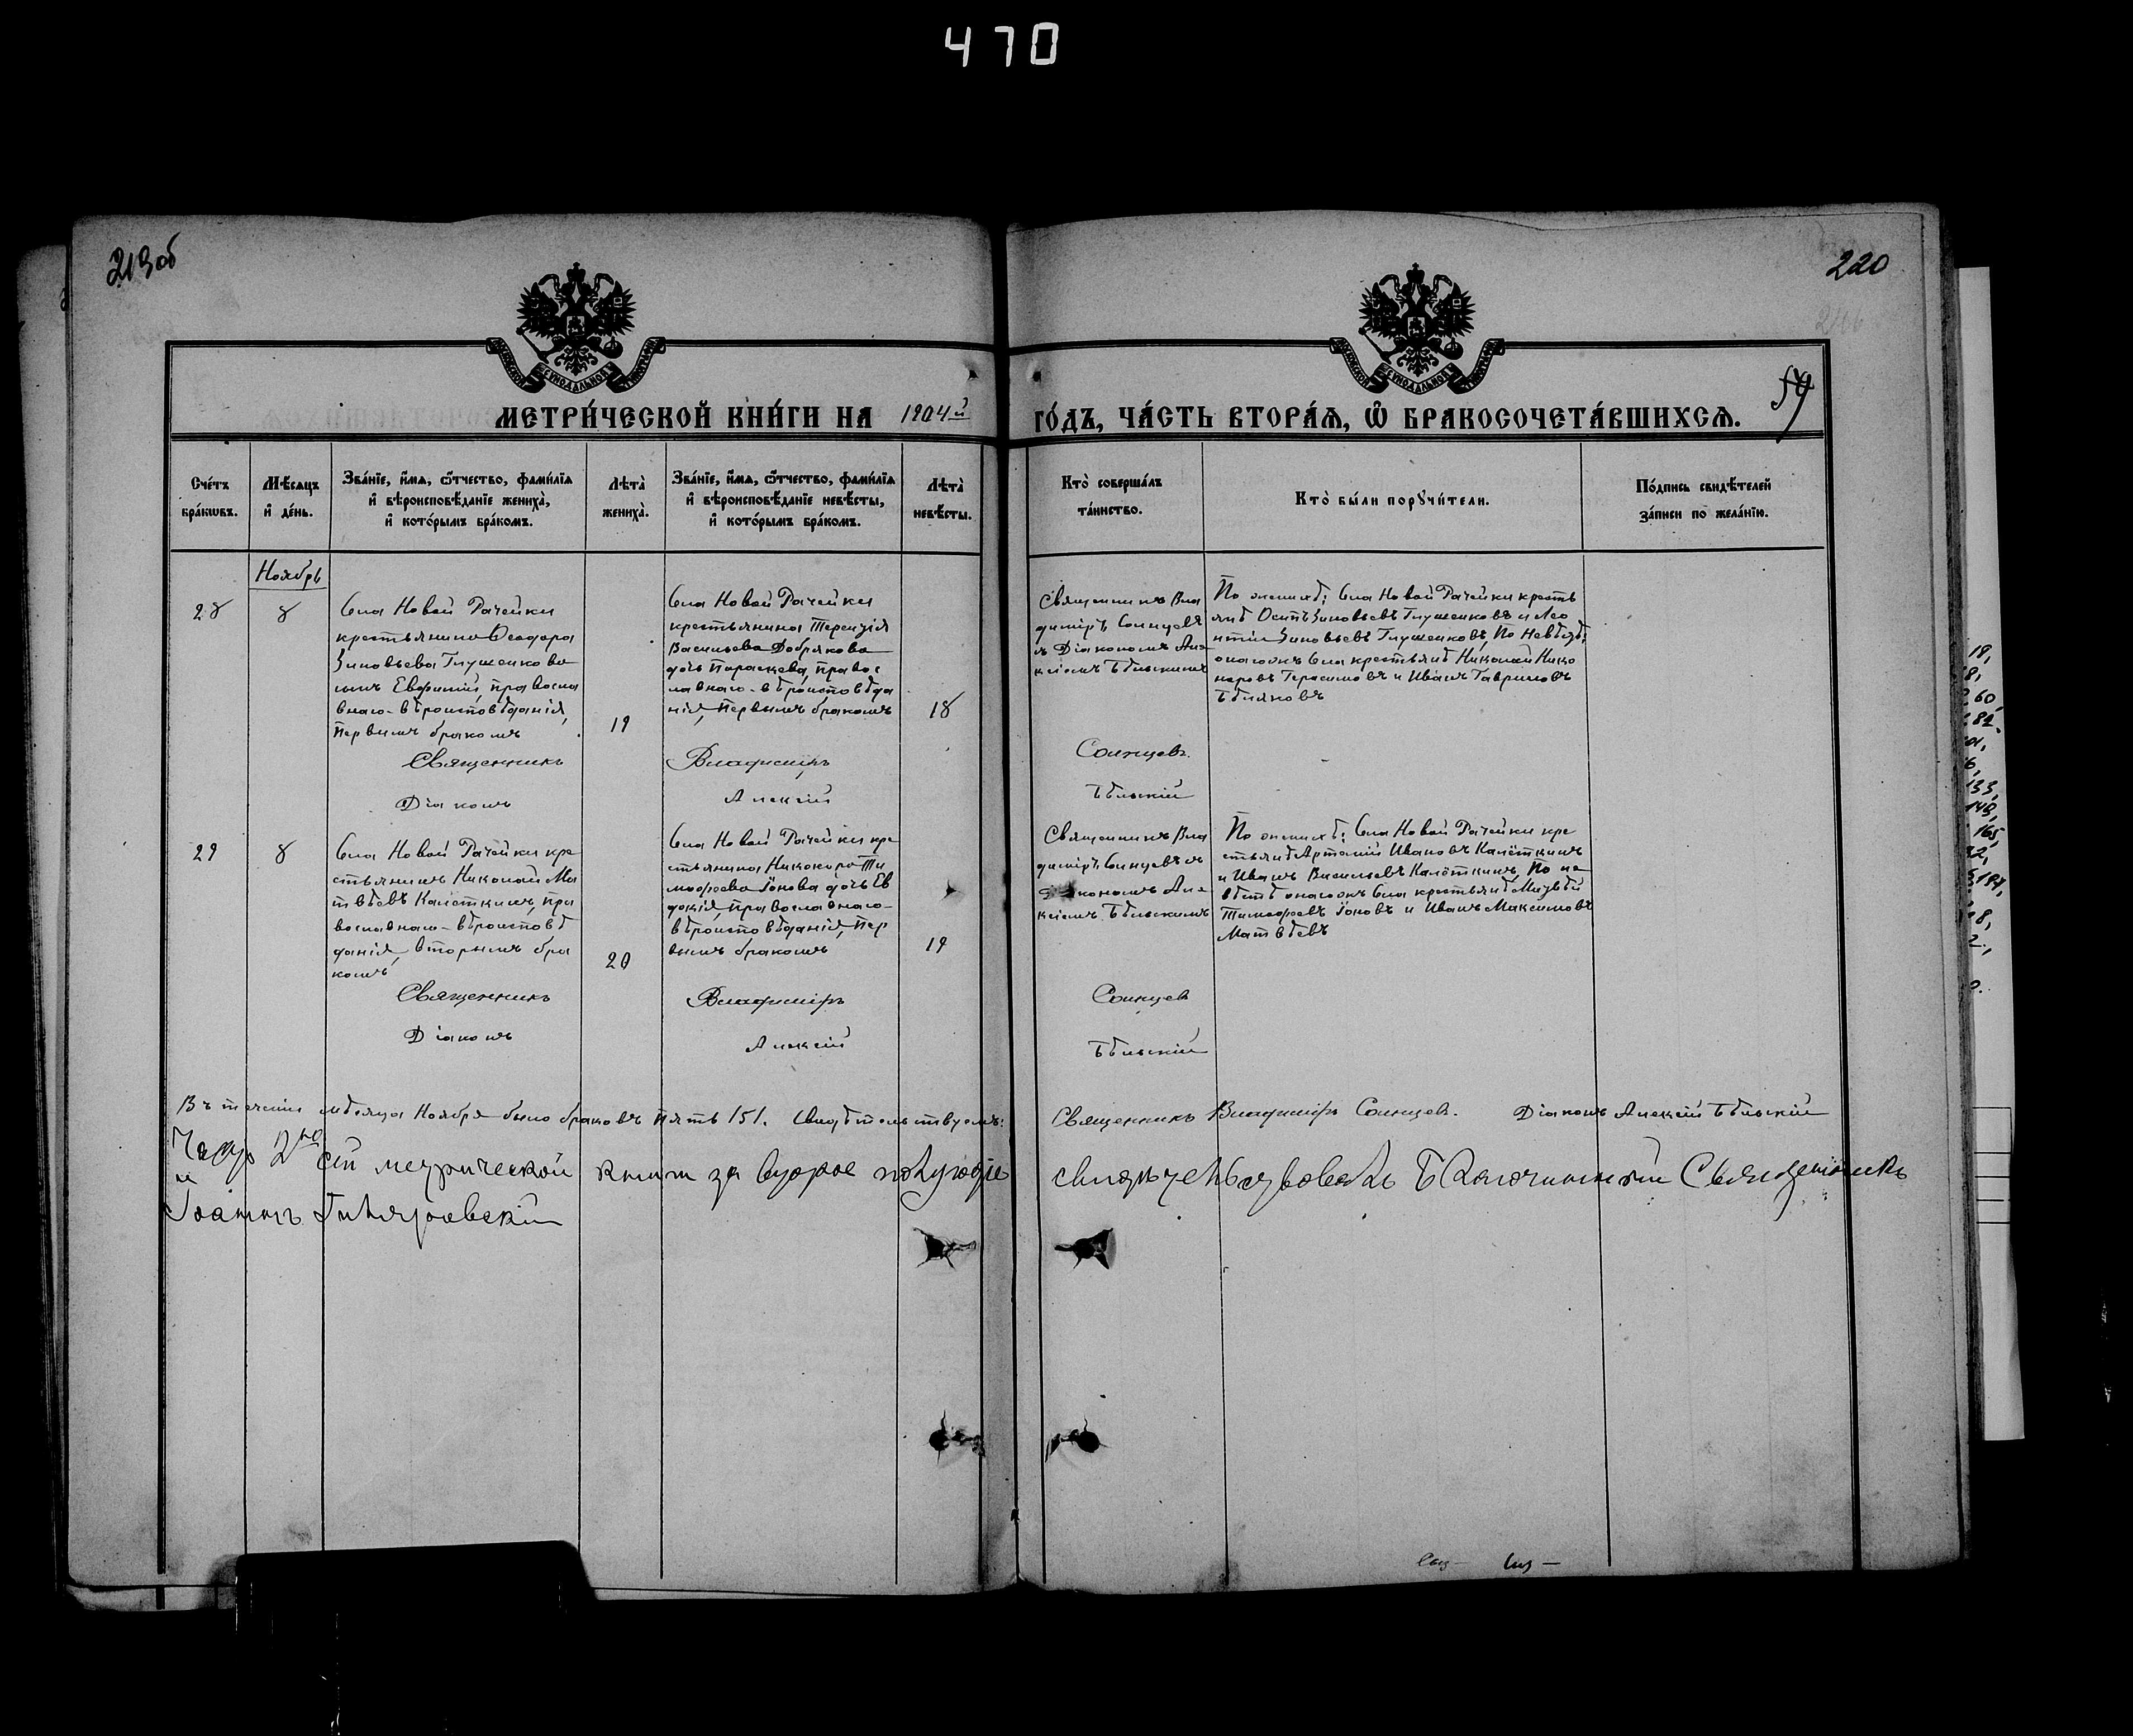 470
219об
220
МЕТРИ́ЧЕСКОЙ КНИ́ГИ НА 1904й
ГО́ДЪ, ЧА́СТЬ ВТОРА́Я, Ѽ БРАКОСОЧЕТА́ВШИХСЯ.
Сче́тъ бра́кѡвъ.
Мѣ́сяцъ и҆ де́нь.
Зва́нїе, и҆́мя, ѻ҆́тчество, фами́лїя
и҆ вѣроисповѣ́данїе жениха̀,
и҆ кото́рымъ бра́комъ.
Лѣта̀ жениха̀.
Зва́нїе, и҆́мя, ѻ҆́тчество, фами́лїя
и҆ вѣроисповѣ́данїе невѣ́сты,
и҆ кото́рымъ бра́комъ.
Лѣта̀ невѣ́сты.
Кто̀ соверша́лъ
та́инство.
Кто̀ бы́ли порꙋчи́тели.
По́дпись свидѣ́телей
за́писи по жела́нїю.
Ноябрь
28
8
Села Новой Рачейки
крестьянина Ѳеодора
Зиновьева Глушенкова
сынъ Евфимій, правосла
внаго вѣроисповѣданія,
первымъ бракомъ
19
Села Новой Рачейки
крестьянина Терентія
Васильева Добрякова
дочь Параскева, правос
лавнаго вѣроисповѣда
нія, первымъ бракомъ
18
Священникъ Вла
диміръ Солнцевъ
съ Діакономъ Але
ксіемъ Бѣльскимъ
По женихѣ: Села Новой Рачейки кресть
янѣ Осипъ Зиновьевъ Глушенковъ и Лео
нтій Зиновьевъ Глушенковъ, По невѣстѣ:
онагожъ Села крестьянѣ Николай Нико
норовъ Герасимовъ и Иванъ Гавриловъ
Бѣляковъ
Священникъ Владиміръ Солнцевъ.
Діаконъ Алексій Бѣльскій
29
8
Села Новой Рачейки кре
стьянинъ Николай Ма
твѣевъ Калёткинъ, пра
вославнаго вѣроисповѣ
данія, вторымъ бра
комъ
20
Села Новой Рачейки кре
стьянина Никонора Ти
моѳеева Іонова дочь Ев
докія, православнаго
вѣроисповѣданія, пер
вымъ бракомъ
19
Священникъ Вла
диміръ Солнцевъ съ
Діакономъ Але
ксіемъ Бѣльскимъ
По женихѣ: Села Новой Рачейки кре
стьянѣ Артемій Ивановъ Калёткинъ
и Иванъ Васильевъ Калёткинъ, По не
вѣстѣ онагожъ Села крестьянѣ
Тимоѳеевъ Іоновъ и Иванъ Максимовъ
Матвѣевъ
Священникъ Владиміръ Солнцев
Діаконъ Алексій Бѣльскій
Въ теченіи мѣсяца Ноября было браковъ пять 15/. Свидѣтельствуемъ: Священникъ Владиміръ Солнцевъ. Діаконъ Алексій Бѣльскій
Часть 2ю сей метрической книги за второе полугодіе свидѣтельствовалъ Благочинный Священникъ
Іоаннъ Гиляровскій